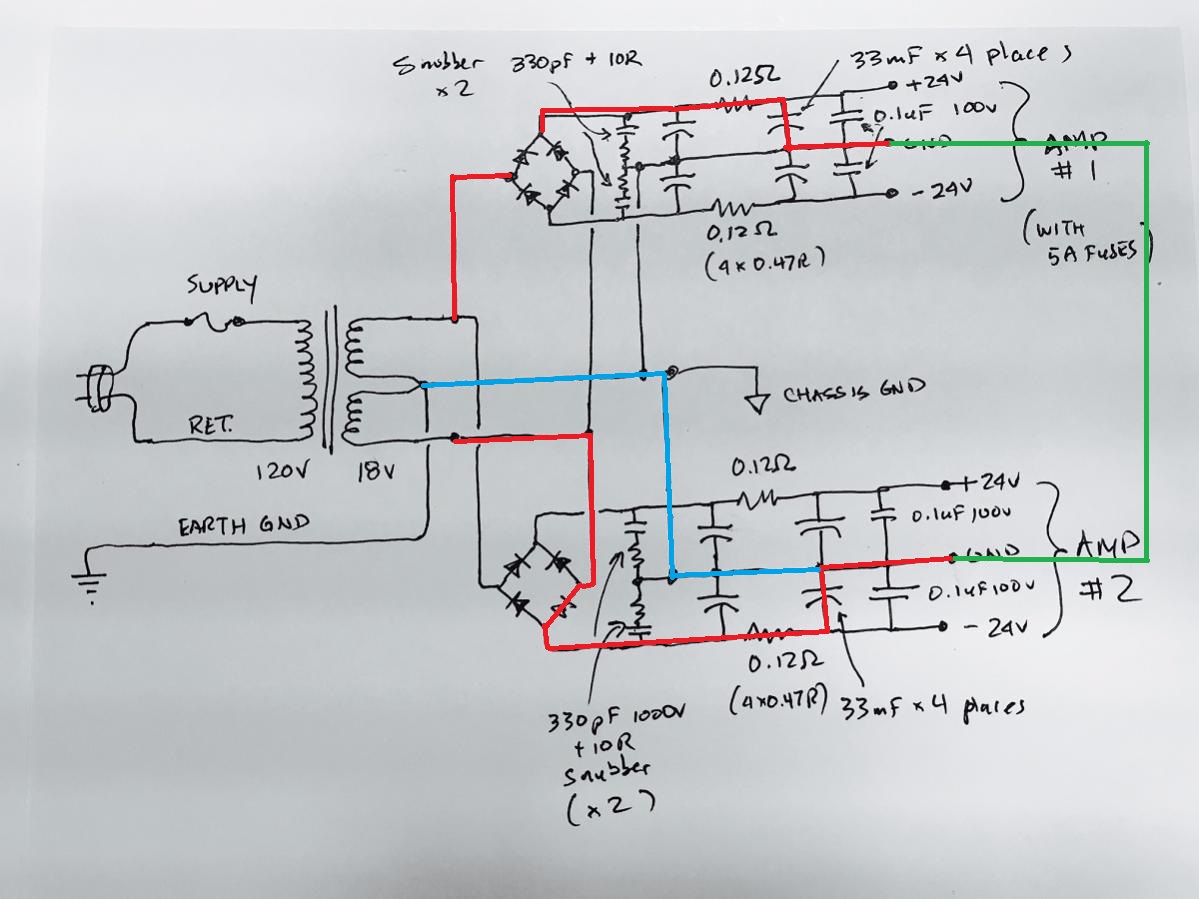 Snubber 330pF + 10R
x2
33mF x 4 places
0.125Ω
+24V
0.1uF 100V
GND
AMP
#1
-24V
0.12Ω
(4x0.47R)
(WITH
5A FUSES)
SUPPLY
CHASSIS GND
RET.
120V
18V
EARTH GND
0.12Ω
+24V
0.1uF 100V
GND
AMP
#2
0.1uF 100V
-24V
0.12Ω
(4x0.47R)
33mF x 4 places
330pF 1000V
+10R
Snubber
(x2)